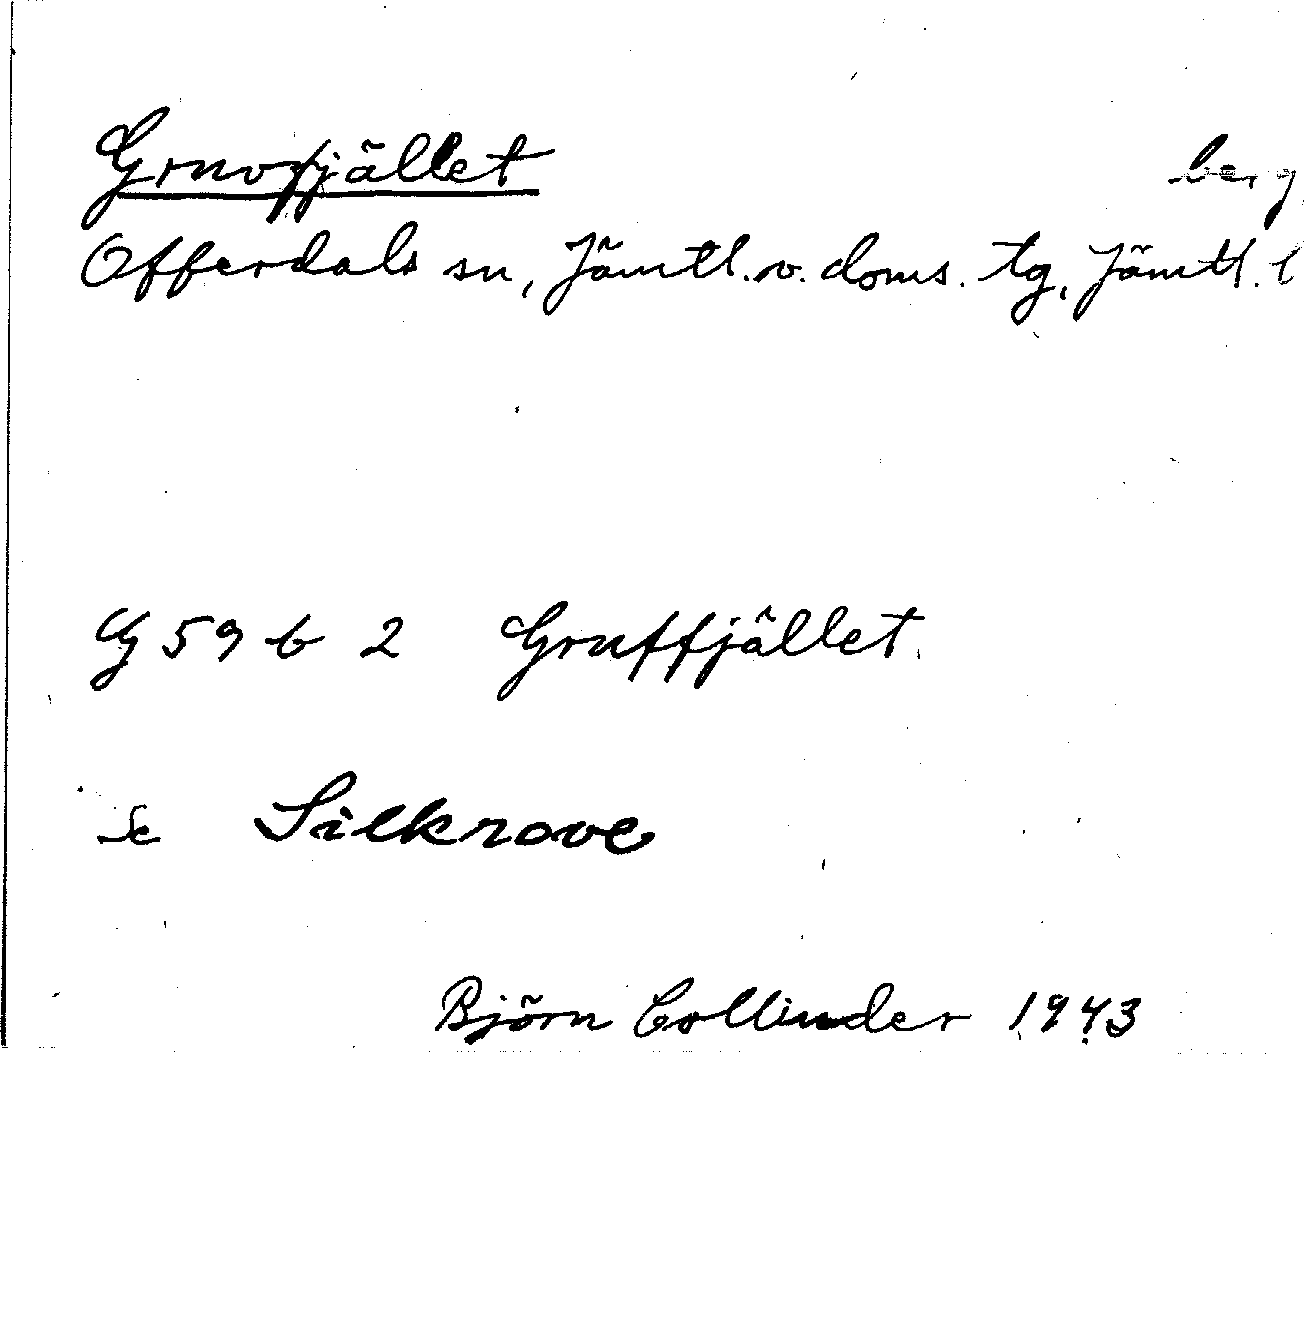 Gruvfjället berg
Offerdals sn, Jämtl. v. doms. tg, Jämtl. l
G 59 b 2 Gruffjället
Se Silkrove
Björn Collinder 1943